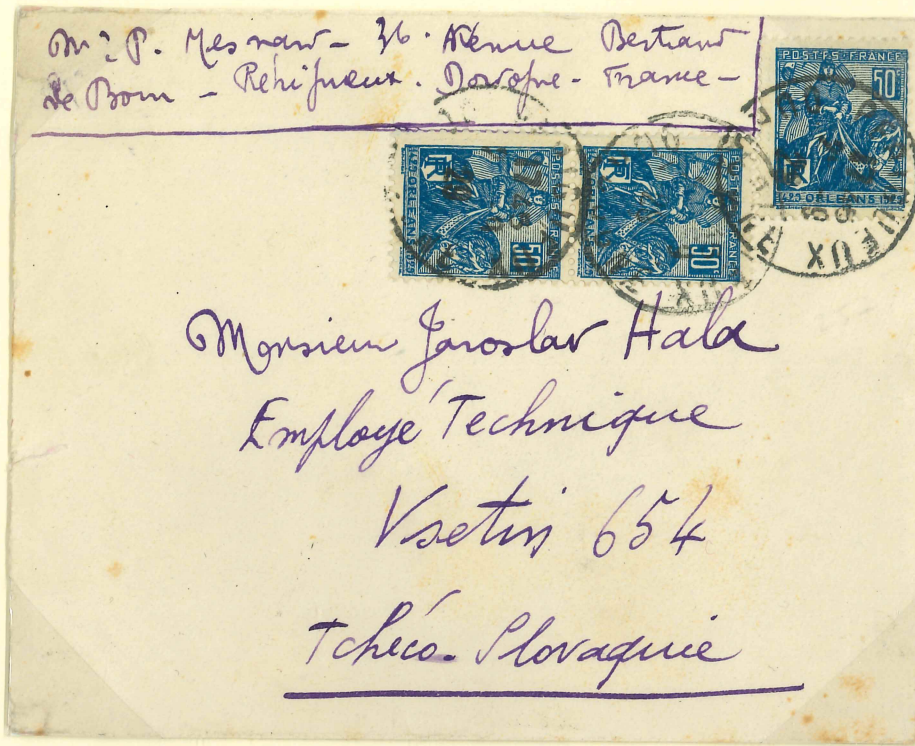 Mr P. Mesnard - 36. Avenue Bertrand
de Born - Périgueux. Dordogne - France -
POSTES FRANCE
50c
RF
1429 ORLEANS 1929
POSTES FRANCE
50c
RF
1429 ORLEANS 1929
POSTES FRANCE
50c
RF
1429 ORLEANS 1929
Monsieur Jaroslav Hala
Employé Technique
Vsetin 654
Tchéco-Slovaquie